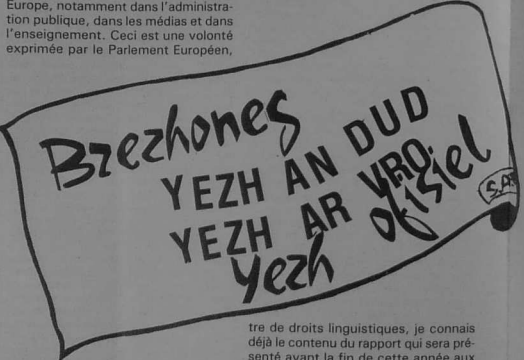 Europe, notamment dans l'administra-
tion publique, dans les médias et dans
l'enseignement. Ceci est une volonté
exprimée par le Parlement Européen,
Brezhoneg
YEZH AN DUD
YEZH AR VRO.
Yezh ofisiel
tre de droits linguistiques, je connais
déjà le contenu du rapport qui sera pré-
senté avant la fin de cette année aux